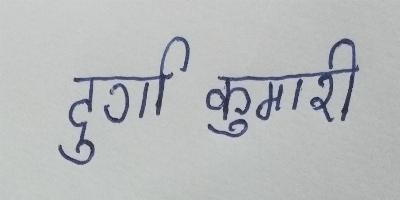 दुर्गा कुमारी